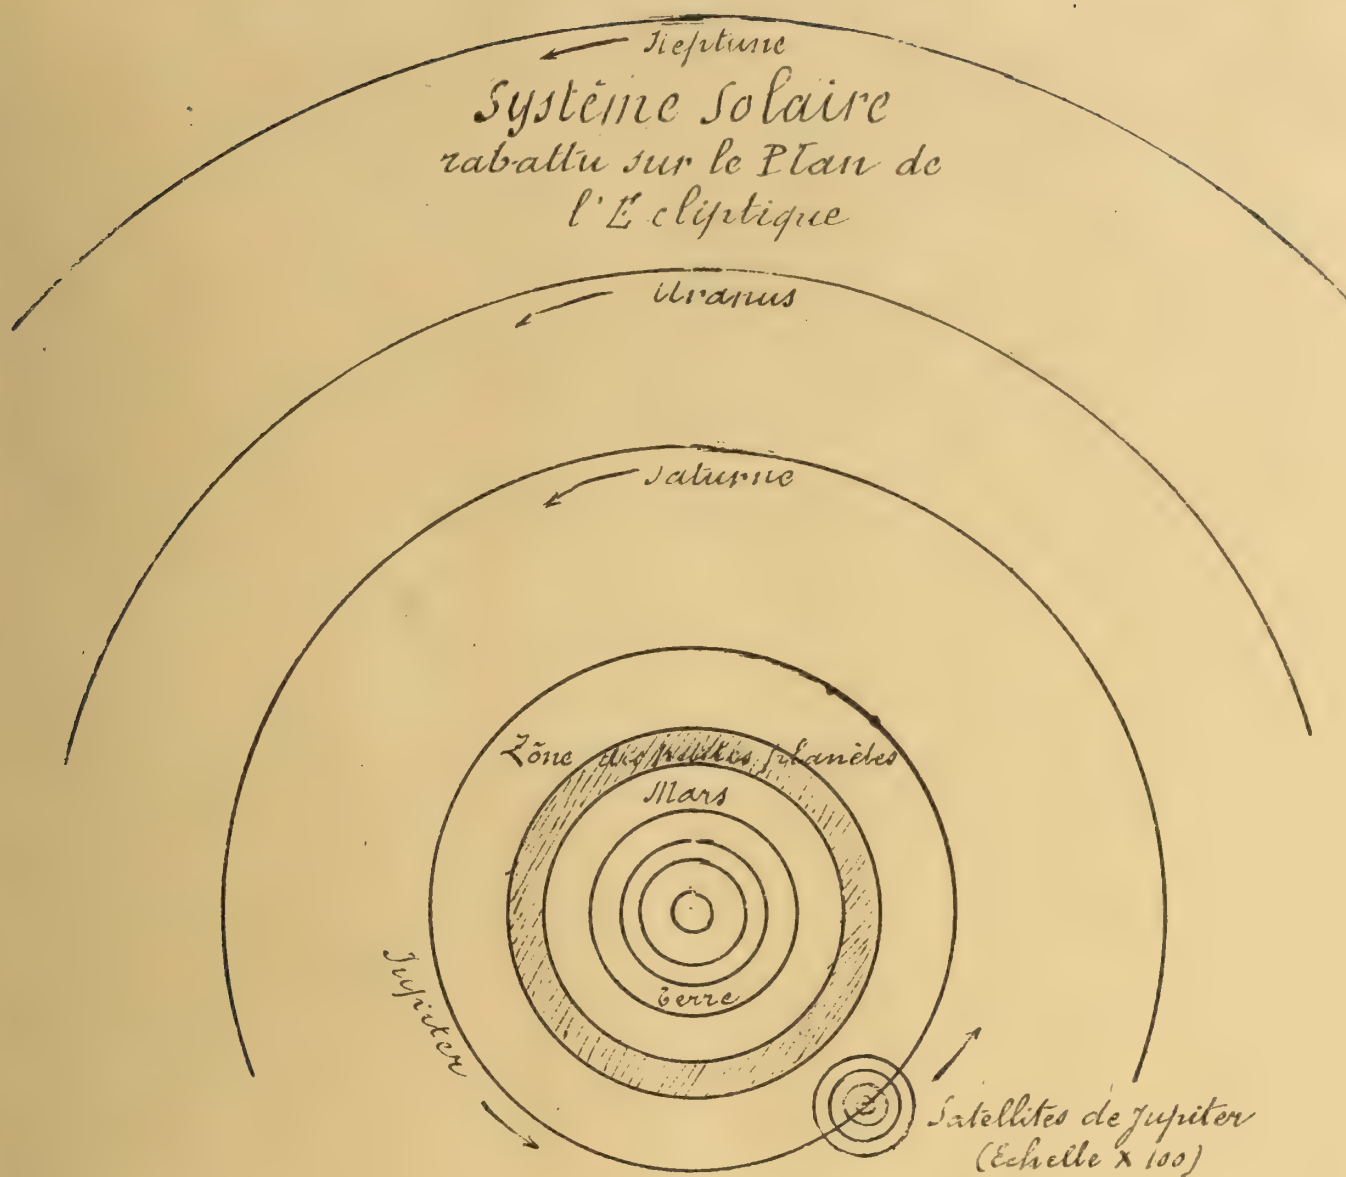 Neptune
Système Solaire
rabattu sur le Plan de
l'Ecliptique
Uranus
Saturne
Zône des petites planètes
Mars
Terre
Jupiter
Satellites de Jupiter
(Echelle X 100)